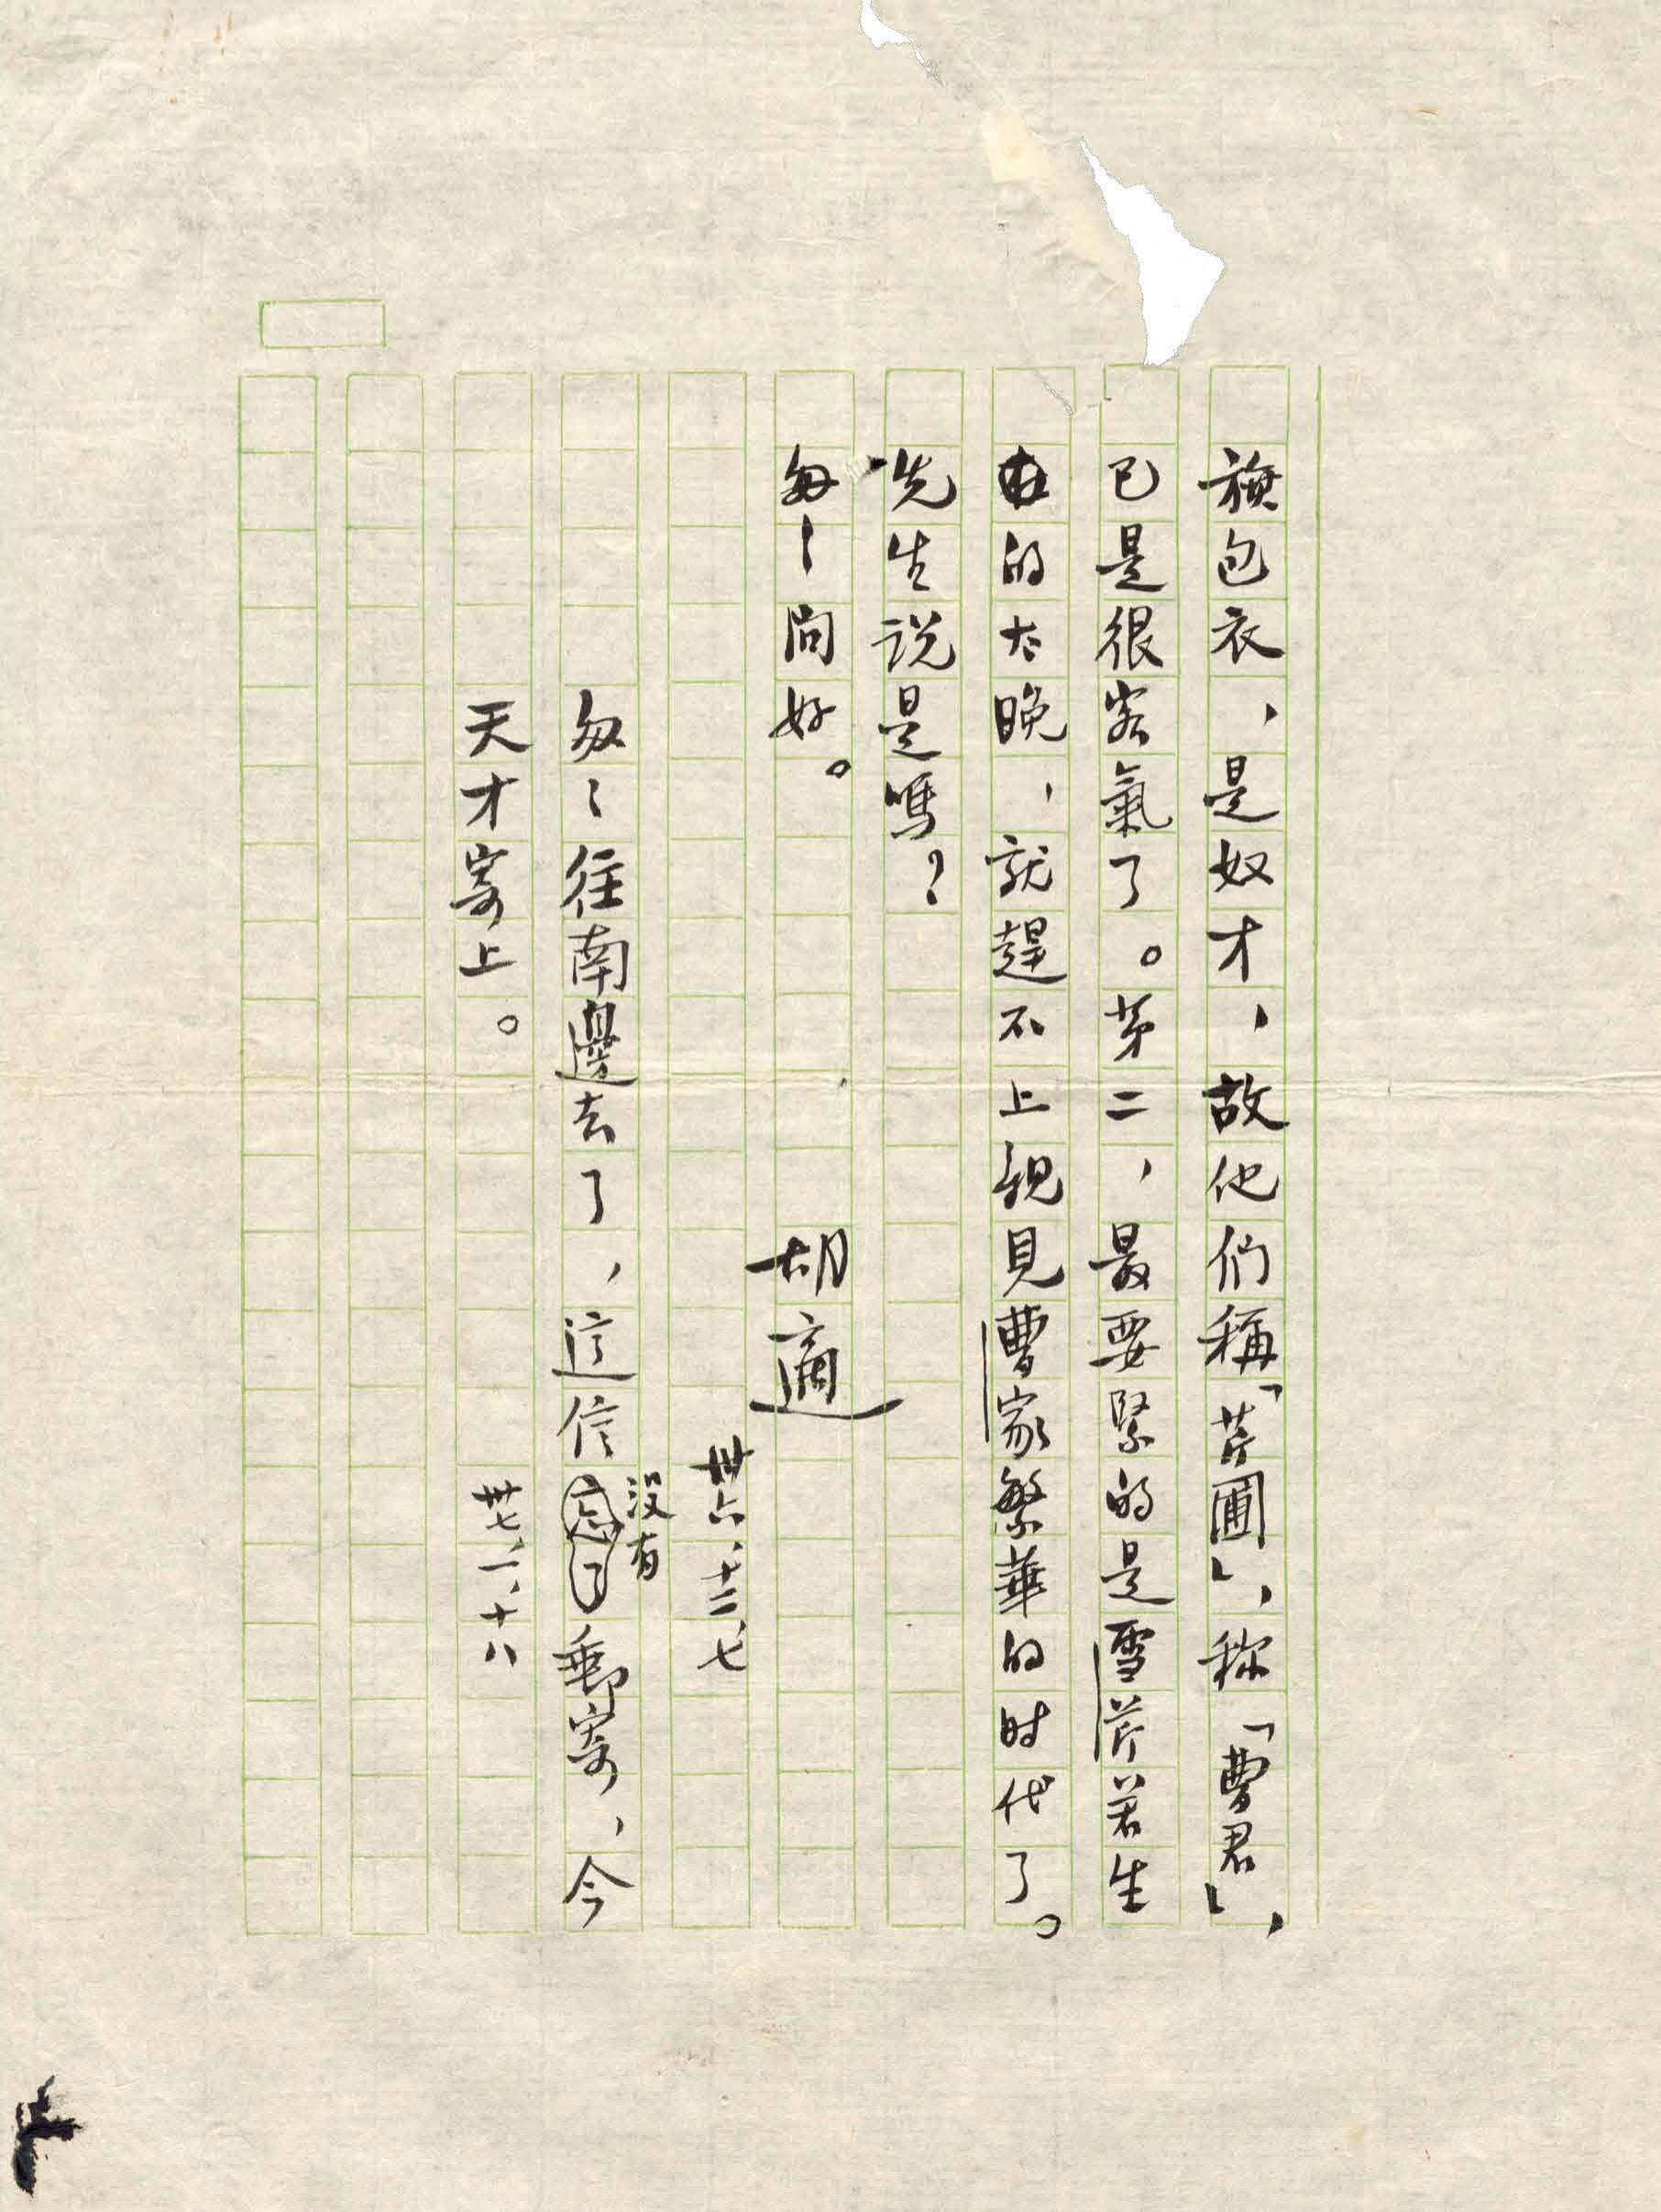 旗包衣，是奴才，故他們稱「芹圃」，称「曹君」，
已是很客氣了。第二，最要緊的是雪芹若生
的太晚，就趕不上親見曹家繁華的时代了。
先生说是嗎？
匆匆問好。
胡適
卅六、十二、七
匆匆往南邊去了，這信
没有
忘了
郵寄，今
天才寄上。
卅七、一、十八